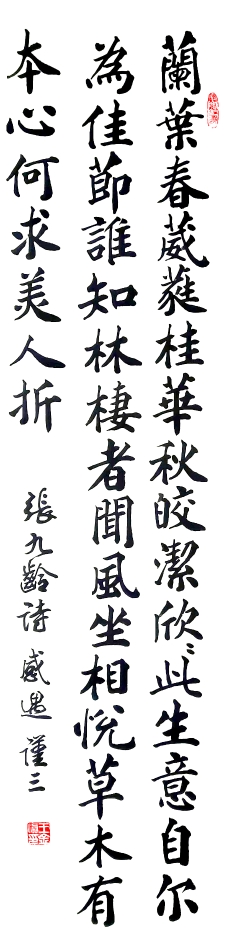 蘭葉春葳蕤桂華秋皎潔欣〻此生意自尔
為佳節誰知林棲者聞風坐相悅草木有
本心何求美人折
張九齡詩感遇 謹三